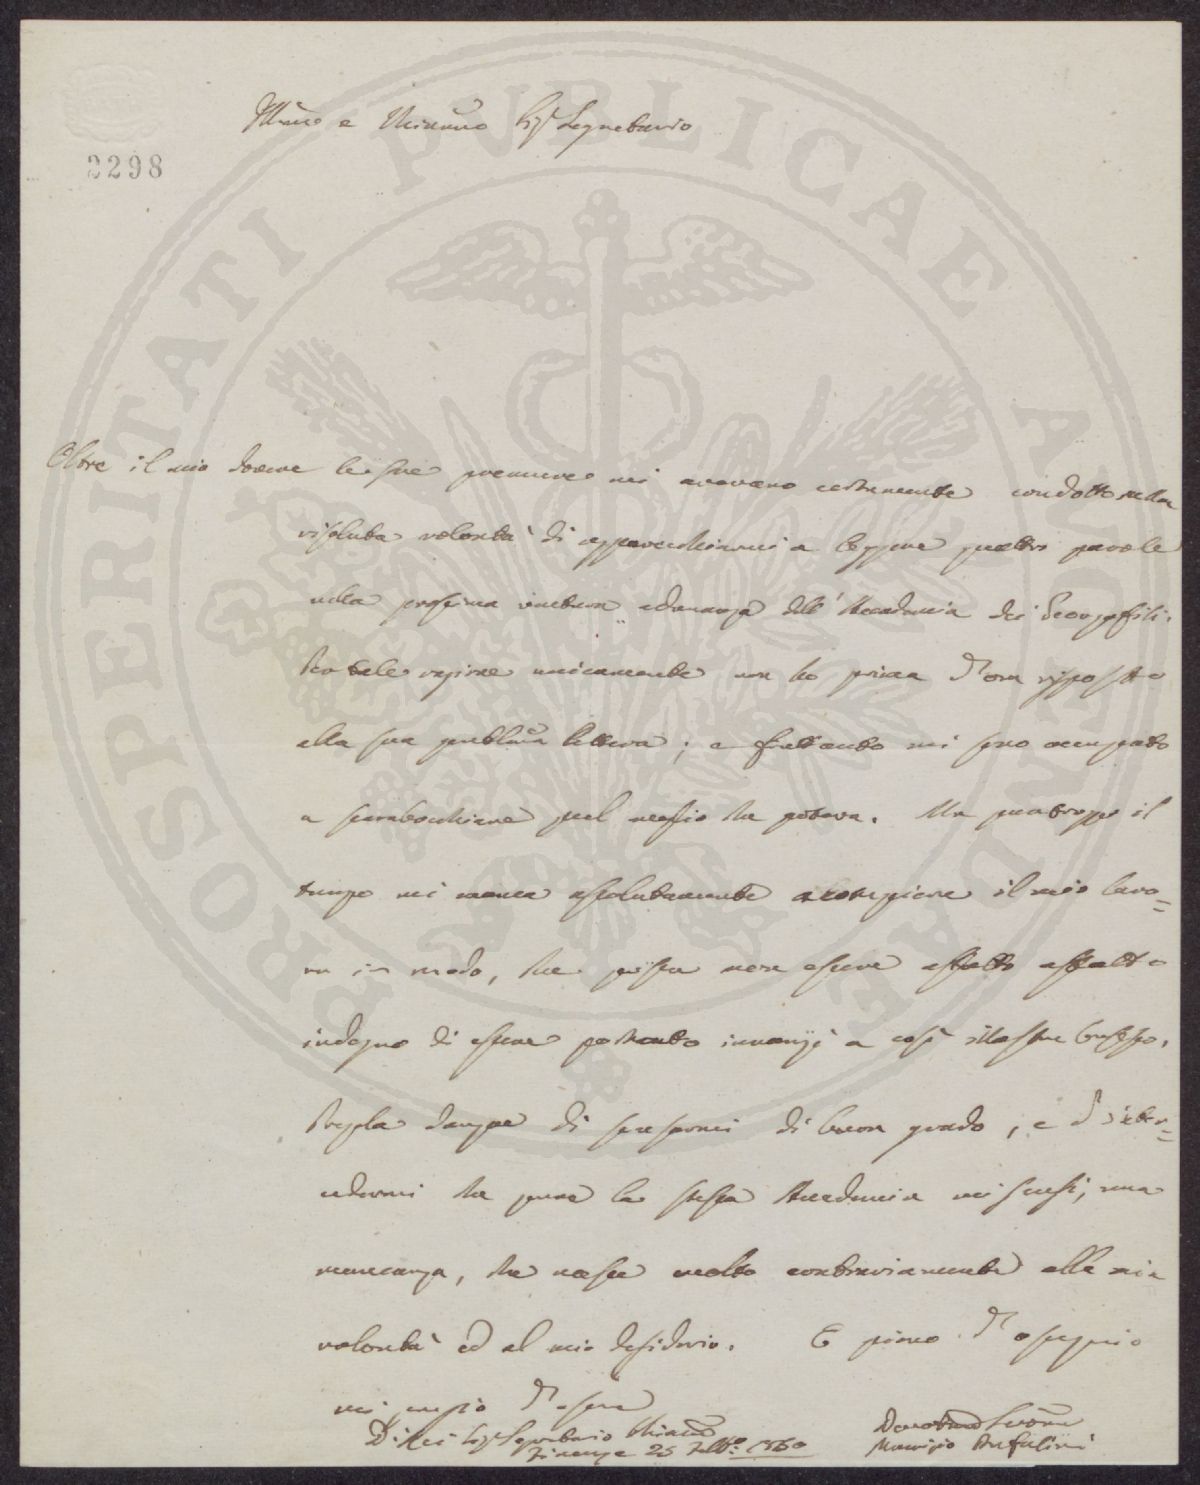 2298
Illmo e Chiarmo Sigr Segretario
Oltre il mio dovere le sue premure mi avevano certamente condotto nella
risoluta volontà di apparecchiarmi a leggere quattro parole
nella prossima ventura adunanza dell' Accademia dei Georgofili.
Per tale ragione unicamente non ho prima d'ora risposto
alla sua pregiatma lettera; e frattanto mi sono occupato
a scarabocchiare pel meglio che poteva. Ma purtroppo il
tempo mi manca assolutamente a compiere il mio lavo=
ro in modo, che possa non essere affatto affatto
indegno di essere portato innanzi a così illustre Consesso.
Pregola dunque di scusarmi di buon grado, e d'inter=
cedermi che pure la stessa Accademia mi scusi, una
mancanza, che nasce molto contrariamente alla mia
volontà ed al mio desiderio. E pieno d'ossequio
mi pregio d'essere
Di Lei Sigr Segretario Chiarmo
Firenze 25 Febbo: 1860
Devotmo Servre
Maurizio Bufalini
PROSPERITATI PUBLICAE AUGENDAE